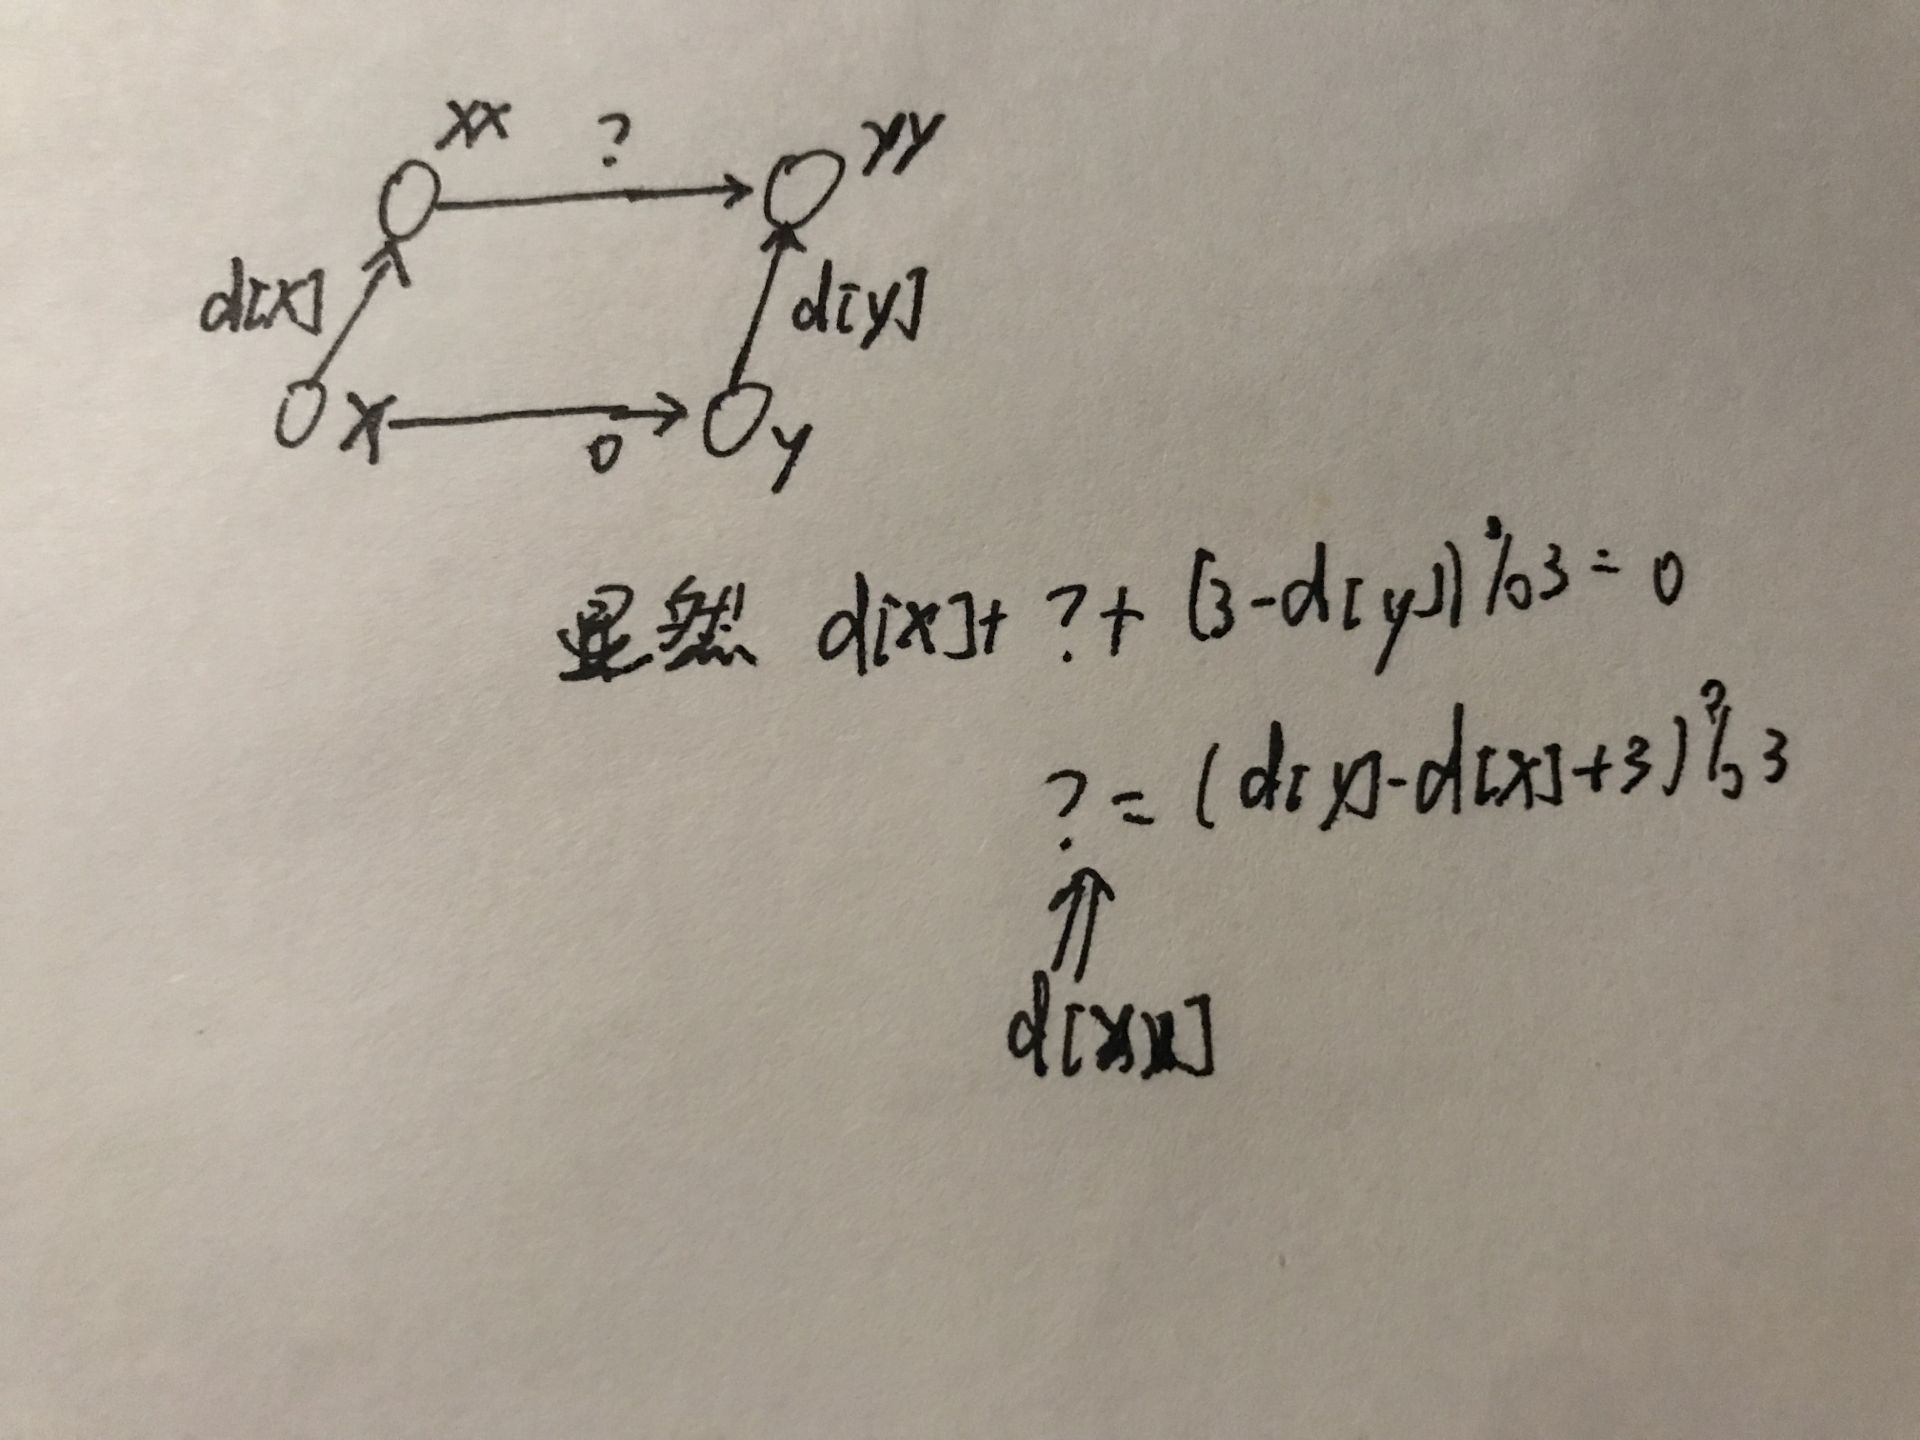 xx ? yy
d[x] d[y]
x 0 y
显然 d[x]+ ? + (3-d[y])%3=0
?=(d[y]-d[x]+3)%3
d[xx]